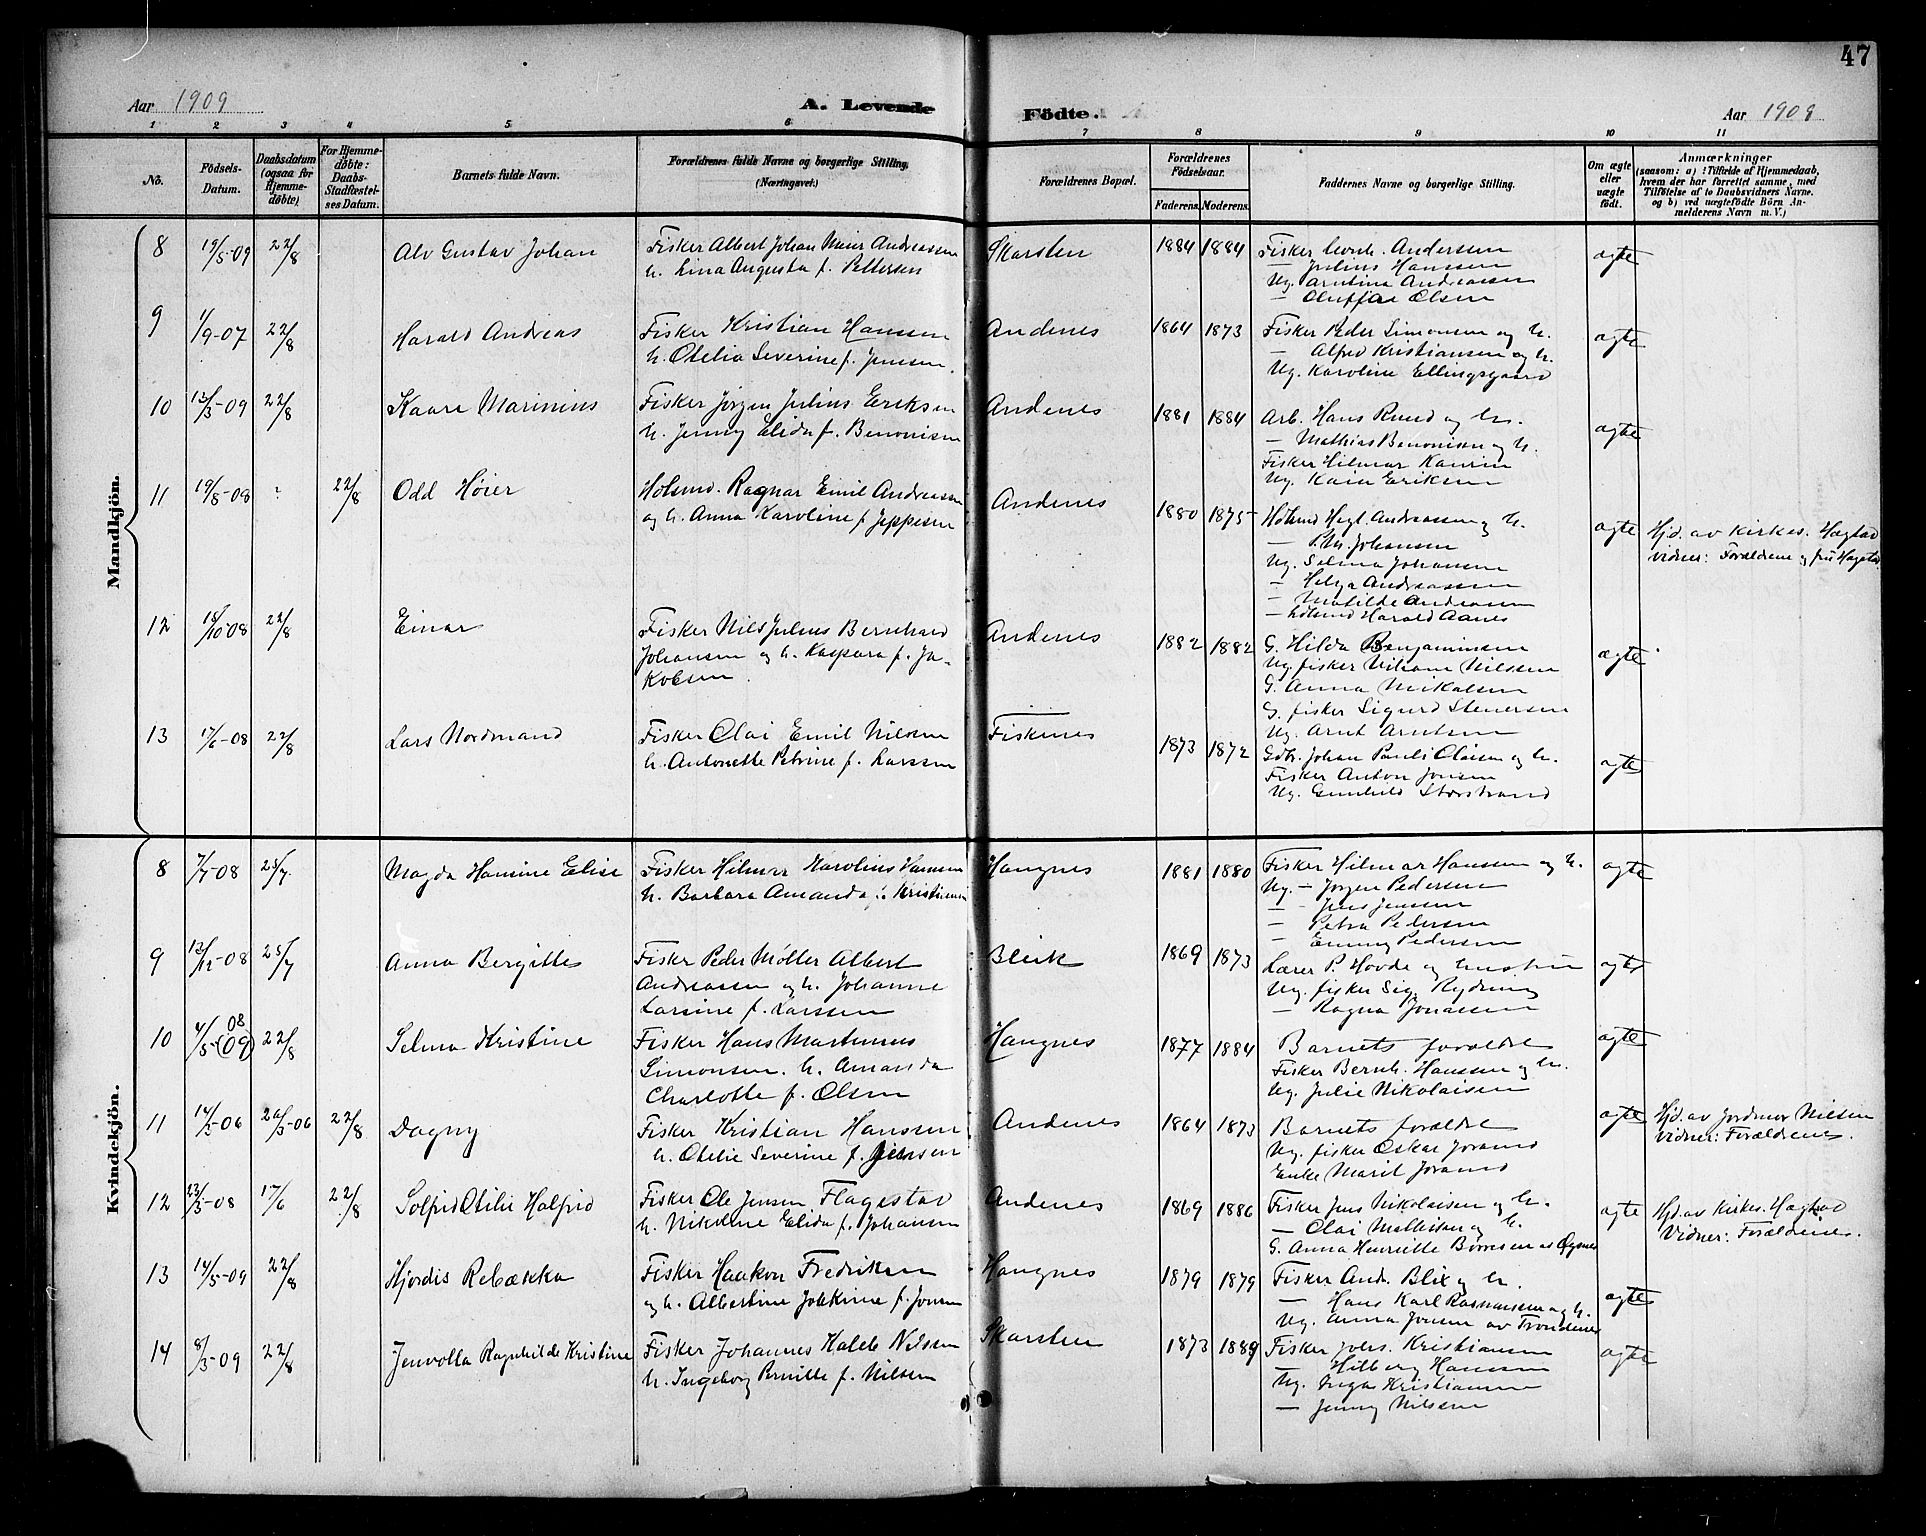 47
Aar 1909
A. Levende
Födte.
Aar 1909
1 2 3 4 5 6 7 8 9 10 11
No.
Födsels-Datum.
Daabsdatum (ogsaa for Hjemmedöbte)
For Hjemmedøbte: Daabs-Stadfæstelses Datum.
Barnets fulde Navn.
Forældrenes fulde Navne og borgerlige Stilling, (Næringsvei.)
Forældrenes Bopæl.
Forældrenes Födselsaar.
Faderens. Moderens.
Faddernes Navne og borgerlige Stilling.
Om ægte eller uægte født.
Anmærkninger
(saasom: a) i Tilfælde af Hjemmedaab,
hvem der har forrettet samme, med
Tilføielse af to Daabsvidners Navne.
og b) ved uægtefödte Börn An-
melderens Navn m. V.)
Mandkjön.
8 19/5-09 22/8 Alv Gustav Johan
Fisker Albert Johan Meier Andreassen
h. Lina Augusta f. Pettersen
Skarsten 1884 1884
Fisker Andersen
— Julius Hanssen
Ug. Arntina Andreassen
— Oluffa Olsen
ægte
9 1/9-07 22/8 Harald Andreas
Fisker Kristian Hanssen
h. Otelia Severine f. Jensen
Andenes 1864 1873
Fisker Peder Simonsen og h.
— Alfred Kristiansen og h.
Ug. Karoline Ellingsgaard
ægte
10 13/3-09 22/8 Kaare Marinius
Fisker Jørgen Julius Eriksen
h. Jenny Elida f. Benonisen
Andenes 1881 1884
Arb. Hans Ruud og h.
— Mathias Benonisen og h.
Fisker Hilmar Kanrin
Ug. Kaia Eriksen
ægte
11 19/8-08 ? 22/8 Odd Høier
Hdlsmd. Ragnar Emil Andreassen
og h. Anna Karoline f. Jeppesen
Andenes 1880 1875
Hdlsmd Andreassen og h.
— Johansen
Ug. Selma Johansen
— Helga Andreassen
— Matilde Andreassen
— Hdlsmd Harald Aanes
ægte
Hjd. av Kirkes. Hagtad
vidner: Forældrene og fru Hagstad
12 18/10-08 22/8 Einar
Fisker Nils Julius Bernhard
Johansen og h. Kaspara f. Ja-
kobsen.
Andenes 1882 1882
G. Hilda Benjaminsen
Ug. fisker Nilssen
G. Anna Mikalsen
G. fisker Sigurd Stenersen
Ug. Arnt Arntsen
ægte
13 17/6-08 22/8 Lars Nordmand
Fisker Olai Emil Nilsen
h. Antonette Petrine f. Larssen
Fiskenes 1873 1872
Gdbr. Johan Pauli Olaisen og h.
Fisker Anton Jensen
Ug. Gunhild Storstrand
ægte
Kvindekjön.
8 7/7-08 25/7 Magda Hansine Elise
Fisker Hilmer Karolius Hansen
h. Barbara Amanda f. Kristiansen
Haugnes 1881 1880
Fisker Hilmar Hanssen og h.
Ug. — Jørgen Pedersen
— - Jens Jensen
— Petra Pedersen
— Emmy Pedersen
ægte
9 13/12-08 25/7 Anna Bergitte
Fisker Peder Møller Albert
Andreassen og h. Johanne
Larsine f. Larssen
Bleik 1869 1873
Lærer P. Hovde og hustru
Ug. fisker Sig. Rydning
— Ragna Jonassen
ægte
10 4/5-08(09) 22/8 Selma Kristine
Fisker Hans Martinus
Simonsen. h. Amanda
Charlotte f. Olsen
Haugnes 1877 1884
Barnets forældre
Fisker Bernh. Hanssen og h.
Ug. Julie Nikolaisen
ægte
11 14/2-06 20/3-06 22/8 Dagny
Fisker Kristian Hanssen
h. Otelie Severine f. Jensen
Andenes 1864 1873
Barnets forældre
Ug. fisker Oskar Joramd
Enke Marit Joramd
ægte
Hjd. av Jordmor Nilsen
vidner: Forældrene.
12 22/3-08 17/6 22/8 Solfrid Otilie Halfrid
Fisker Ole Jensen Flagestad
h. Nikoline Elida f. Johansen
Andenes 1869 1886
Fisker Jens Nikolaisen og h.
— Olai Mathisen og h.
G. Anna Henriette Borresen
ægte
Hjd. av Kirkes. Hagtad
Vidner: Forældrene.
13 14/5-09 22/8 Hjordis Rebækka
Fisker Haakon Fredriksen
og h. Albertine Jolekine f. Jonsen
Haugnes 1879 1879
Fisker And. Blix og h.
— Hans Karl Rasmussen og h.
Ug. Anna Jonsen av Trondenes
ægte
14 8/3-09 22/8 Jenvolla Ragnhilde Kristine
Fisker Johannes Kaleb Nilsen
h. Ingeborg Pernille f. Nilsen
Skarsten 1873 1889
Fisker Johs. Kristiansen
— Hilberg Hansen
Ug. Inga Kristiansen
— Jenny Nilsen
ægte